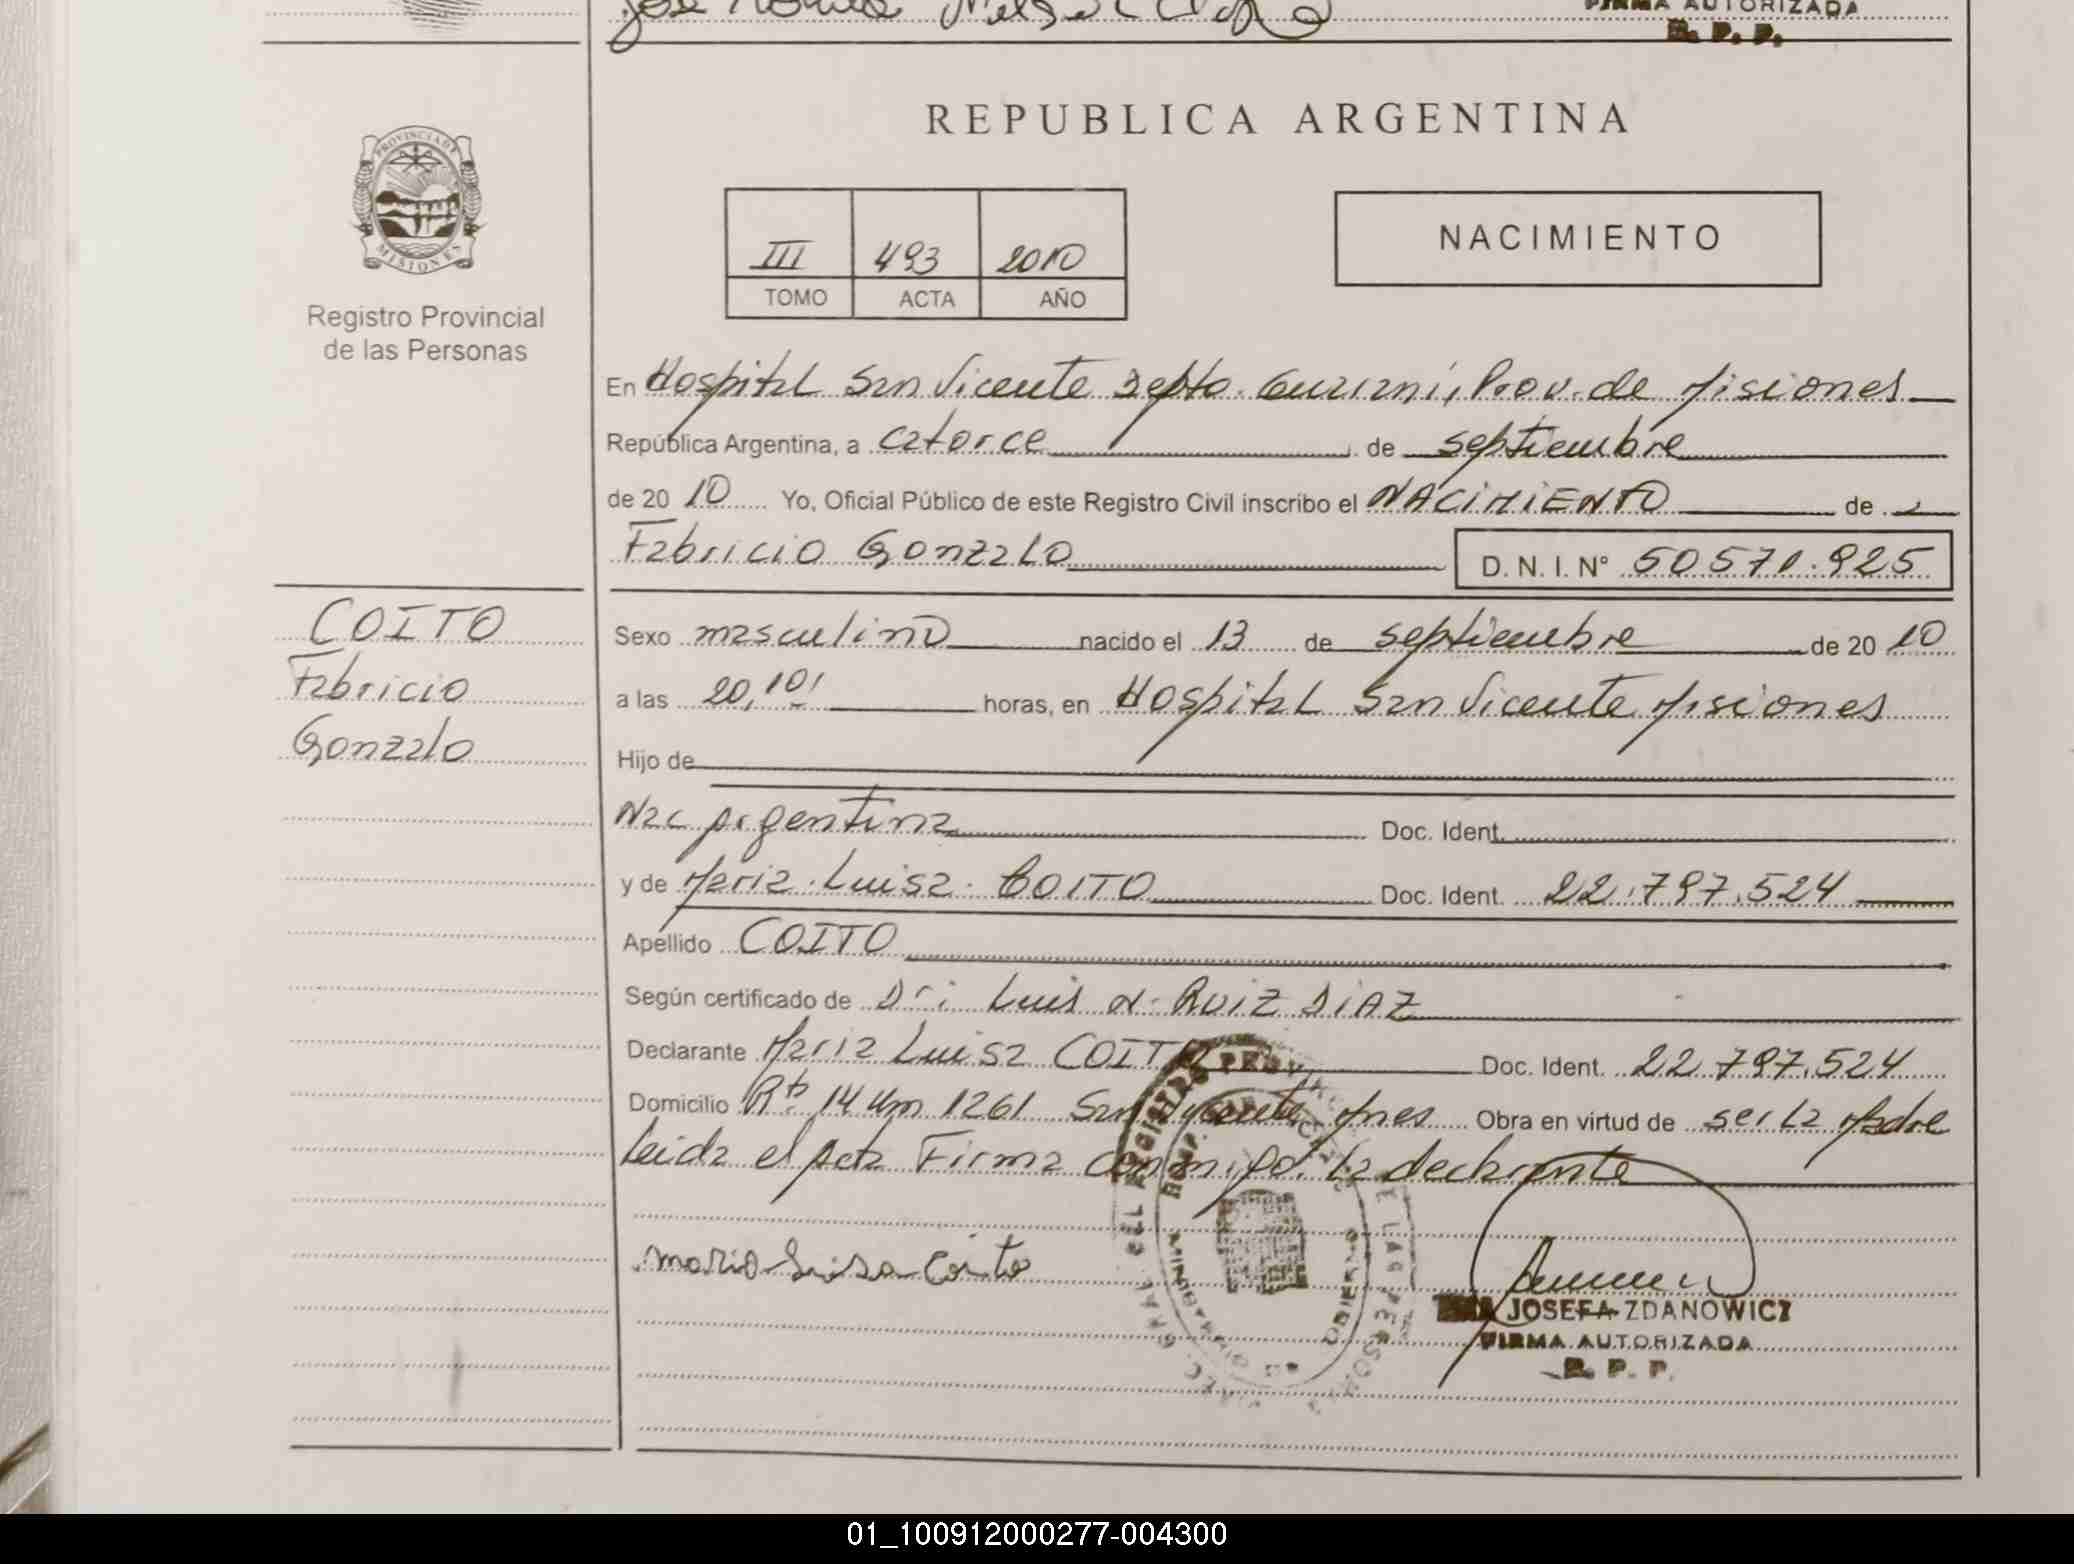 FIRMA AUTORIZADA
R. P. P.
PROVINCIA DE
MISIONES
Registro Provincial
de las Personas
REPUBLICA ARGENTINA
III 493 2010
TOMO ACTA AÑO
NACIMIENTO
En Hospital San Vicente Depto. Guaraní, Prov. de Misiones
República Argentina, a catorce de septiembre
de 20 10 Yo, Oficial Público de este Registro Civil inscribo el NACIMIENTO de
Fabricio Gonzalo D. N. I. N° 50571.925
COITO
Fabricio
Gonzalo
Sexo masculino nacido el 13 de septiembre de 20 10
a las 20,10' horas, en Hospital San Vicente Misiones
Hijo de
Nac Argentina Doc. Ident.
y de Maria Luisa COITO Doc. Ident. 22.797.524
Apellido COITO
Según certificado de Dr: Luis N. RUIZ DIAZ
Declarante Maria Luisa COITO Doc. Ident. 22.797.524
Domicilio Rta 14 Km 1261 San Vicente Mnes Obra en virtud de ser la Madre
Leida el Acta Firma conmigo la declarante
maria Luisa Coito
JOSEFA ZDANOWICZ
FIRMA AUTORIZADA
R. P. P.
01_100912000277-004300